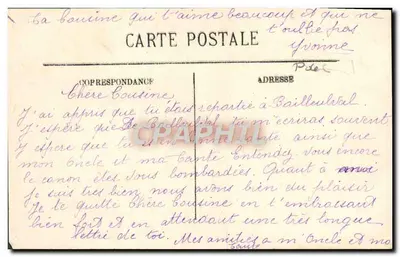 La cousine qui t'aime beaucoup et qui ne
t'oublie pas
Yvonne
CARTE POSTALE
P de C
CORRESPONDANCE
ADRESSE
Chère Cousine
J'ai appris que tu étais repartie à Bailleulval
J'espère que de Bailleulval tu m'écriras souvent
J'espère que tu es en bonne santé ainsi que
mon Oncle et ma Tante Entendez vous encore
le canon êtes vous bombardées. Quant à moi
Je suis très bien nous avons bien du plaisir
Je te quitte chère cousine en t'embrassant
bien fort et en attendant une très longue
lettre de toi. Mes amitiés a m Oncle et ma
tante